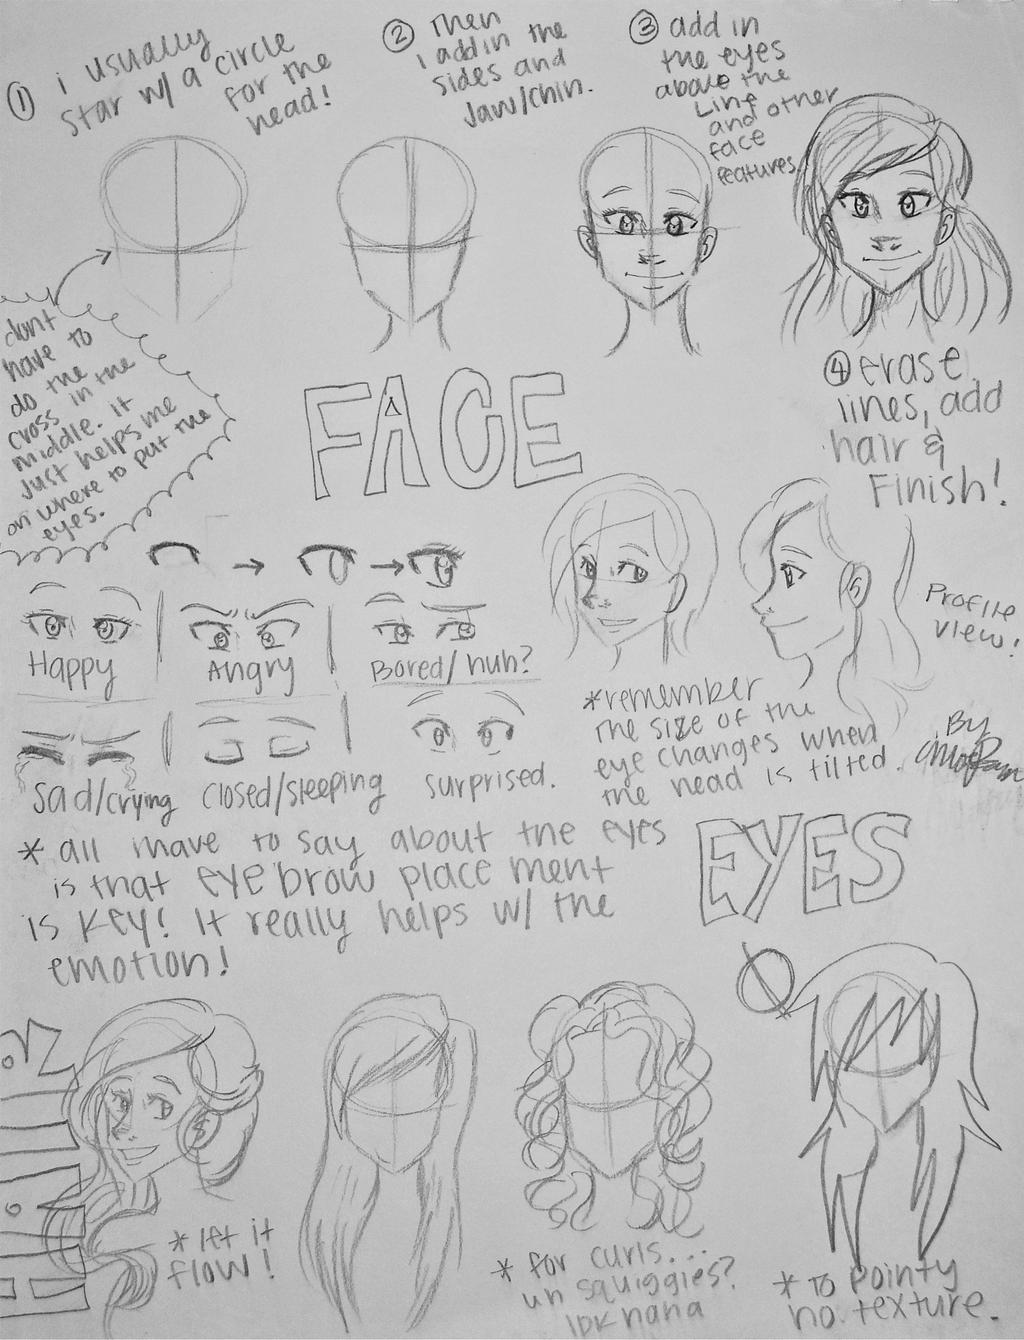 ① i usually
star w/ a circle
for the
head!
② Then
i add in the
sides and
Jaw/chin.
③ add in
the eyes
above the
Line
and other
face
features.
④ erase
lines, add
hair &
Finish!
dont
have to
do the
cross in the
middle. it
Just helps me
on where to put the
eyes.
FACE
Happy
Angry
Bored/huh?
Sad/crying
closed/sleeping
surprised.
Profile
view!
*remember
the size of the
eye changes when
the head is tilted.
By
* all i have to say about the eyes
is that eyebrow place ment
is key! It really helps w/ the
emotion!
EYES
* let it
flow!
* for curls...
uh squiggies?
idk haha
* To pointy
no texture.